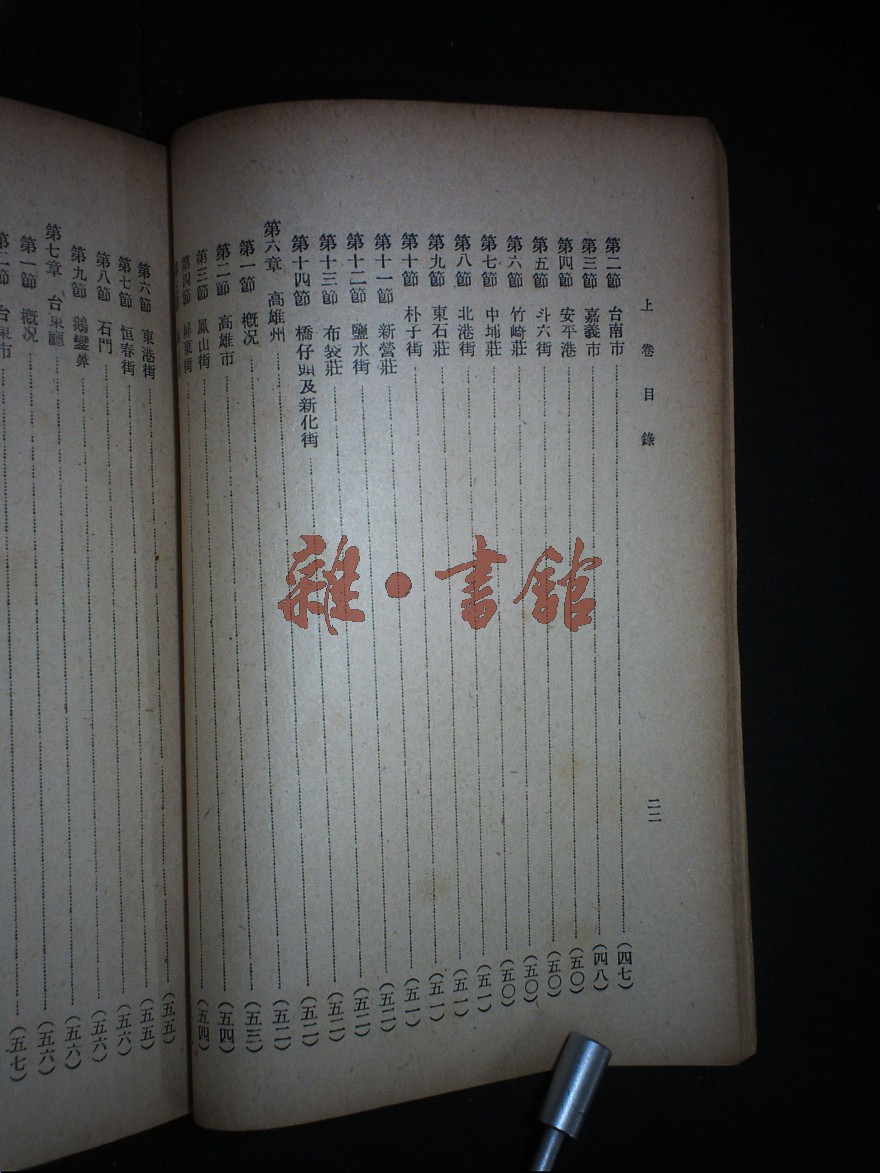 上卷目錄
二二
第二節 台南市 (四七)
第三節 嘉義市 (四八)
第四節 安平港 (五〇)
第五節 斗六街 (五〇)
第六節 竹崎莊 (五〇)
第七節 中埔莊 (五〇)
第八節 北港街 (五一)
第九節 東石莊 (五一)
第十節 朴子街 (五一)
第十一節 新營莊 (五一)
第十二節 鹽水街 (五二)
第十三節 布袋莊 (五二)
第十四節 橋仔頭及新化街 (五二)
第六章 高雄州 (五二)
第一節 概况 (五二)
第二節 高雄市 (五三)
第三節 鳳山街 (五四)
第四節 屏東街 (五四)
第六節 東港街 (五五)
第七節 恒春街 (五五)
第八節 石門 (五六)
第九節 鵝鑾鼻 (五六)
第七章 台東廳 (五六)
第一節 概况 (五六)
第二節 台東市 (五七)
雜·書館